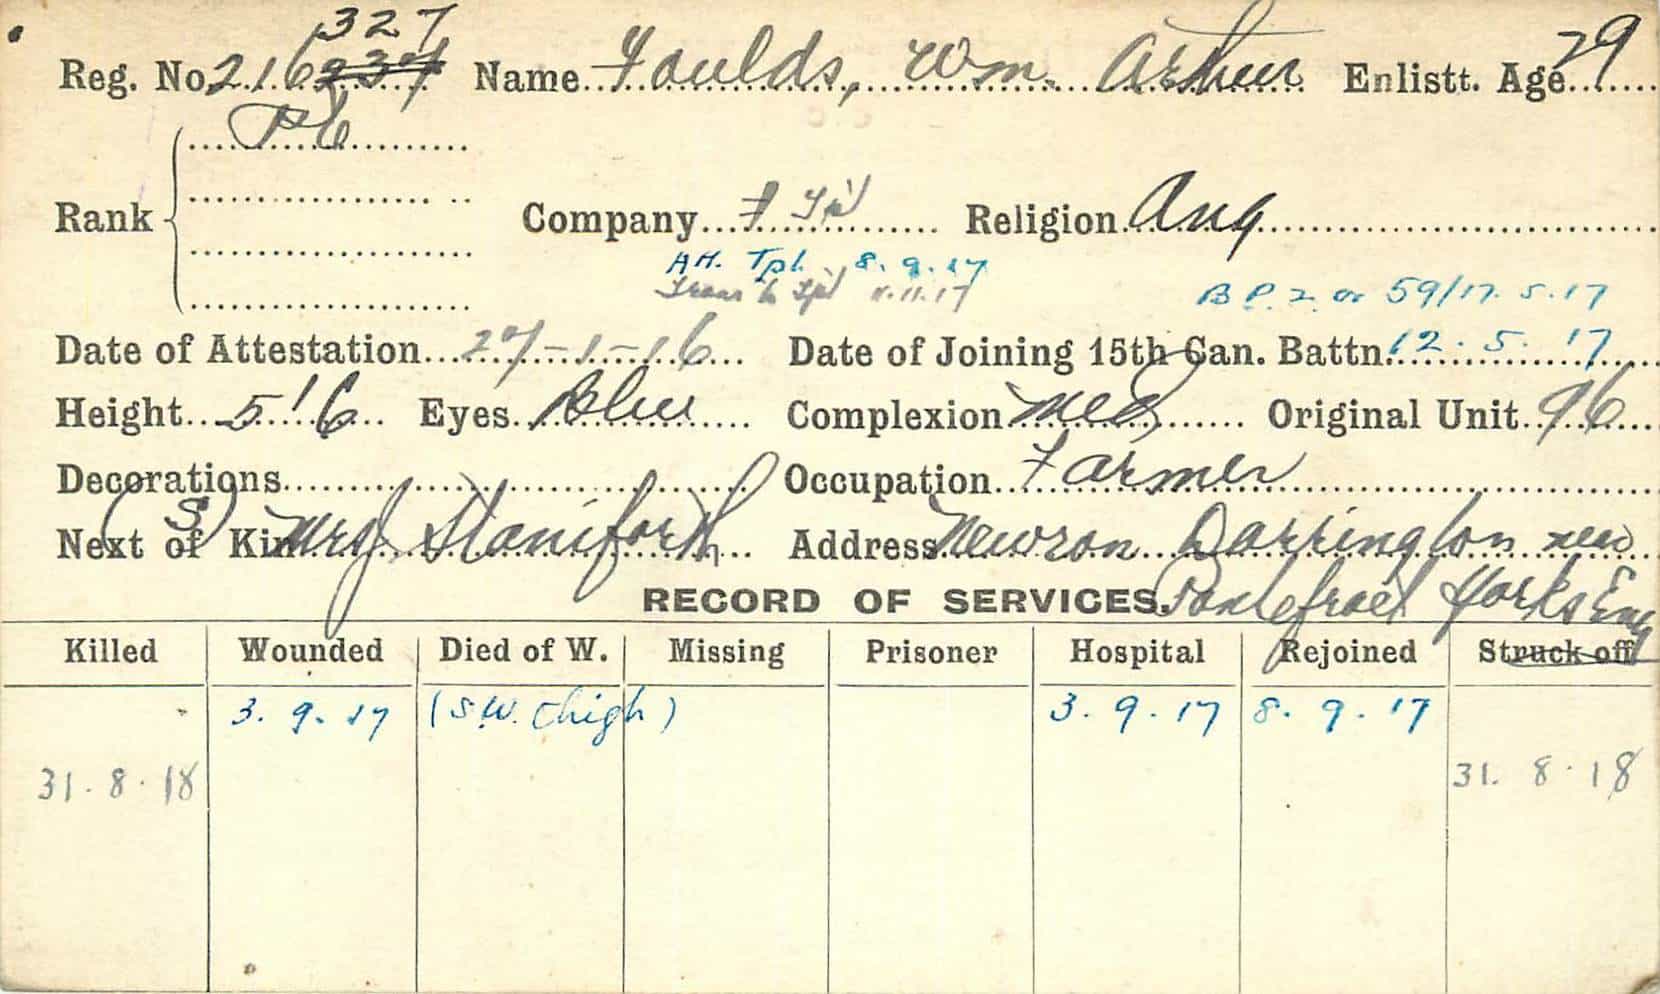 327
Reg. No. 216 237 Name Foulds, Wm. Arthur Enlistt. Age 29
Pte
Rank Company F Tpt Religion Ang
A.H. Tpt. 8.9.17
Trans to Tpt 11.11.17 B P. 2. or 59/17.5.17
Date of Attestation 27-1-16 Date of Joining 15th Can. Battn. 12.5.17
Height 5'6 Eyes Blue Complexion Med Original Unit 96
Decorations Occupation Farmer
(S)
Next of Kin Mrs J. Staniforth Address Darrington near
RECORD OF SERVICES. Pontefract Yorks Eng
Killed Wounded Died of W. Missing Prisoner Hospital Rejoined Struck off
3.9.17 (S.W. thigh) 3.9.17 8.9.17
31.8.18 31.8.18